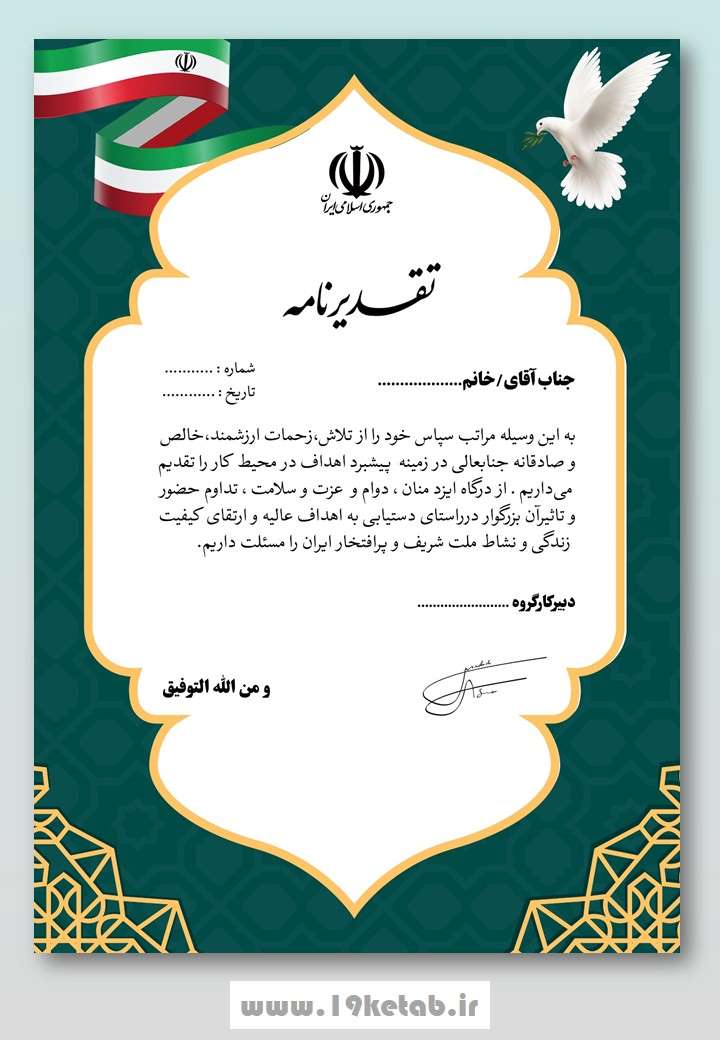 جمهوری اسلامی ایران
تقدیرنامه
شماره : ...........
جناب آقای/خانم...................
تاریخ : ............
به این وسیله مراتب سپاس خود را از تلاش،زحمات ارزشمند،خالص
و صادقانه جنابعالی در زمینه پیشبرد اهداف در محیط کار را تقدیم
می‌داریم . از درگاه ایزد منان ، دوام و عزت و سلامت ، تداوم حضور
و تاثیرآن بزرگوار درراستای دستیابی به اهداف عالیه و ارتقای کیفیت
زندگی و نشاط ملت شریف و پرافتخار ایران را مسئلت داریم.
دبیرکارگروه ........................
و من الله التوفیق
www.19ketab.ir